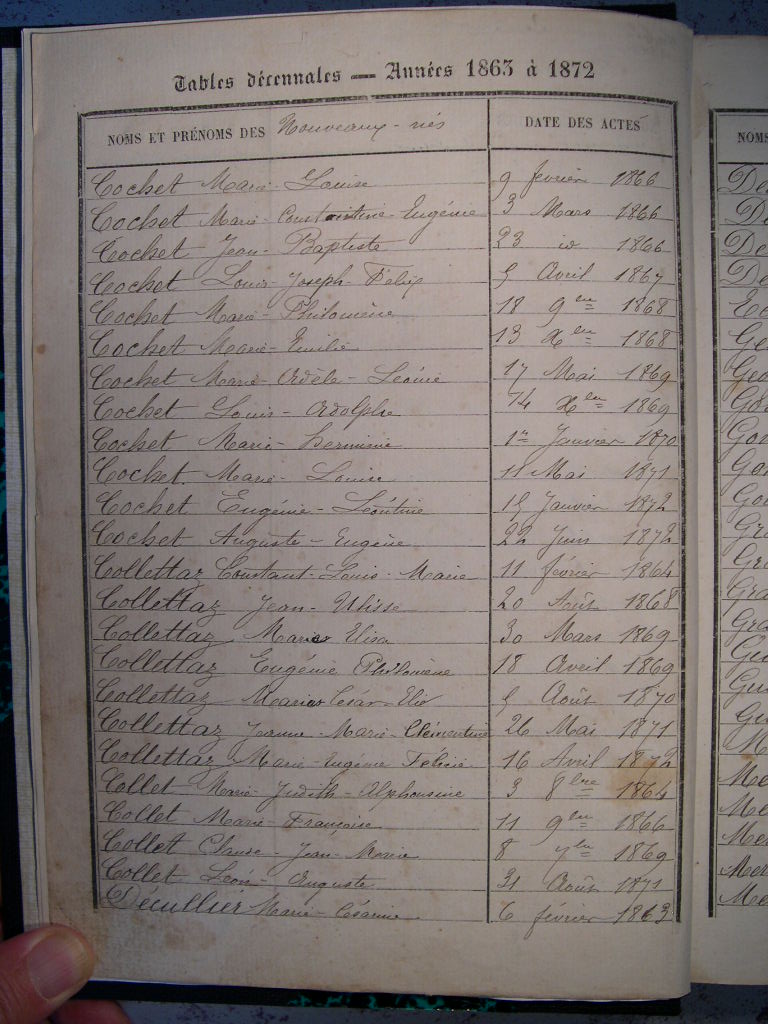 Tables décennales — Années 1863 à 1872
NOMS ET PRÉNOMS DES Nouveaux-nés DATE DES ACTES
Cochet Marie-Louise 9 février 1866
Cochet Marie-Constantine-Eugénie 3 Mars 1866
Cochet Jean-Baptiste 23 id 1866
Cochet Louis-Joseph-Félix 5 Avril 1867
Cochet Marie-Philomène 18 9bre 1868
Cochet Marie-Emilie 13 Xbre 1868
Cochet Marie-Adèle-Léonie 17 Mai 1869
Cochet Louis-Adolphe 14 Xbre 1869
Cochet Marie-Herminie 1er Janvier 1870
Cochet Marie-Louise 11 Mai 1871
Cochet Eugénie-Léontine 15 Janvier 1872
Cochet Auguste-Eugène 22 Juin 1872
Collettaz Constant-Louis-Marie 11 février 1864
Collettaz Jean-Ulisse 20 Août 1868
Collettaz Marie Elisa 30 Mars 1869
Collettaz Eugénie Philomène 18 Avril 1869
Collettaz Marie César Elie 5 Août 1870
Collettaz Jeanne-Marie-Clémentine 26 Mai 1871
Collettaz Marie-Eugénie Félicie 16 Avril 1872
Collet Marie-Judith-Alphonsine 3 8bre 1864
Collet Marie-Françoise 11 9bre 1866
Collet Claude-Jean-Marie 8 7bre 1869
Collet Léon-Auguste 31 Août 1871
Décullier Marie-Césarine 6 février 1863
NOMS